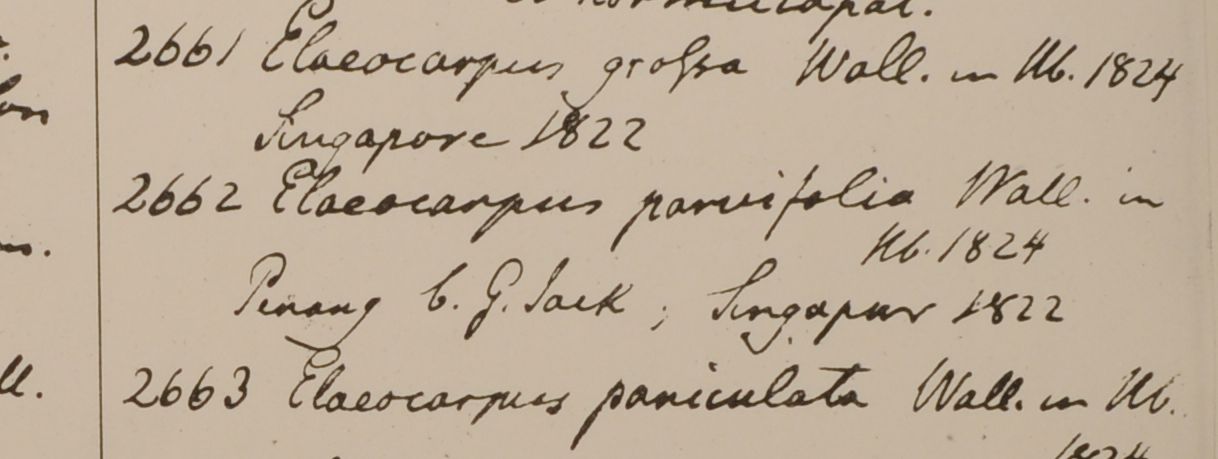 2661 Elaeocarpus grossa Wall. in Hb. 1824
Singapore 1822
2662 Elaeocarpus parvifolia Wall. in
Hb. 1824
Penang b. G. Jack ; Singapur 1822
2663 Elaeocarpus paniculata Wall. in Hb.
1824